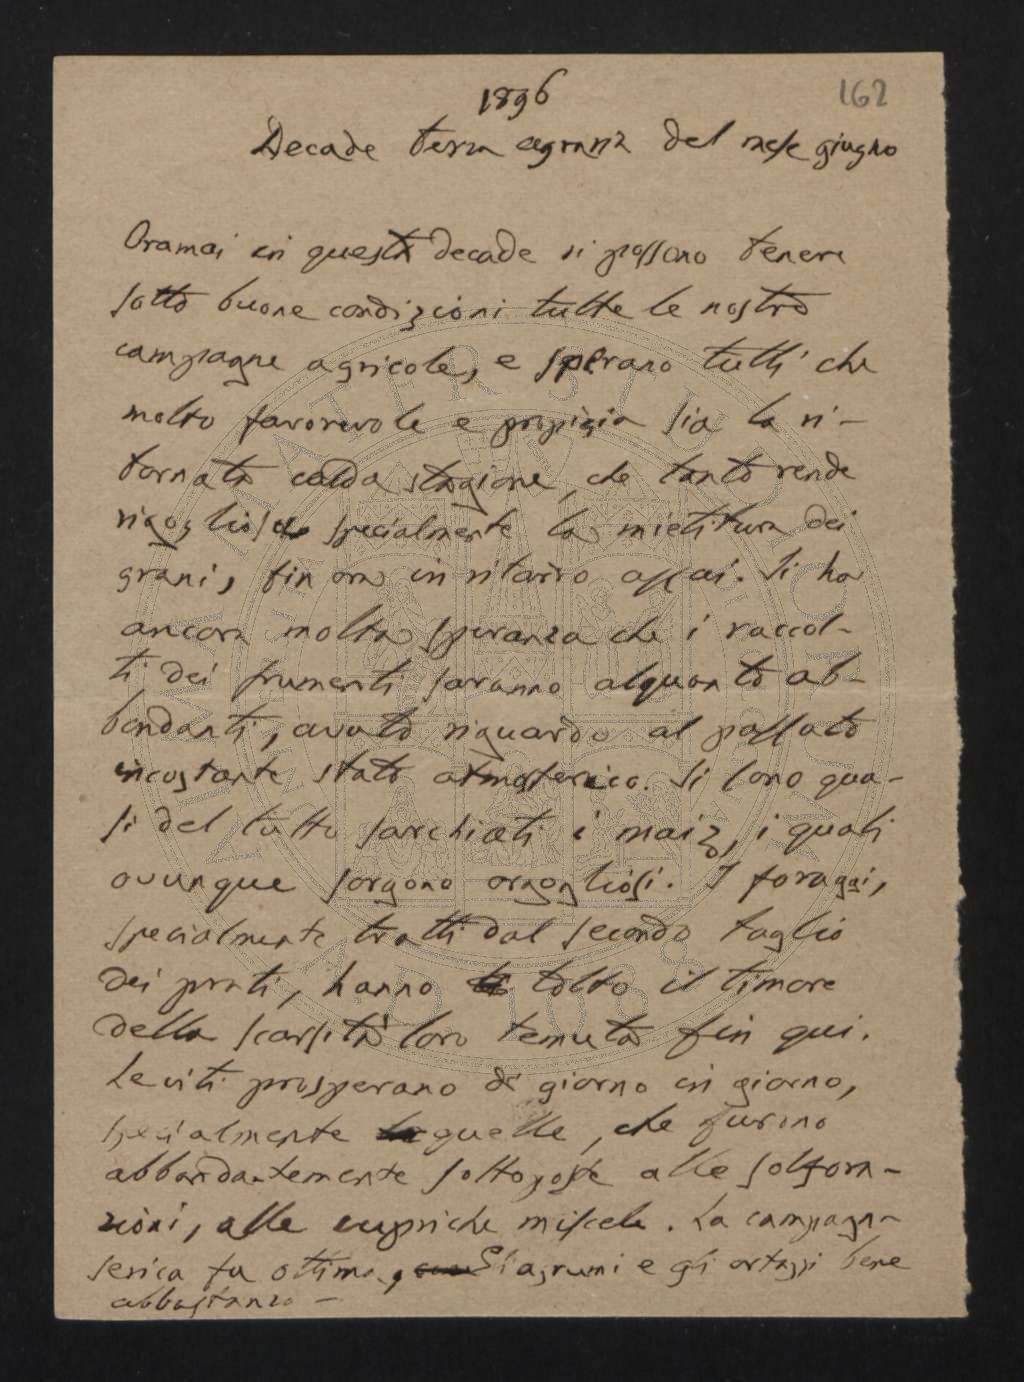 1896
162
Decade terza agraria del mese giugno
Oramai in questa decade si possono tenere
sotto buone condizioni tutte le nostre
campagne agricole, e sperano tutti che
molto favorevole e propizia sia la ri-
tornata calda stagione, che tanto rende
rigogliosa specialmente la mietitura dei
grani, fin ora in ritardo assai. Si ha
ancora molta speranza che i raccol-
ti dei frumenti saranno alquanto ab-
bondanti, avuto riguardo al passato
incostante stato atmosferico. Si sono qua-
si del tutto sarchiati i maiz, i quali
ovunque sorgono orgogliosi. I foraggi,
specialmente tratti dal secondo taglio
dei prati, hanno tolto il timore
della scarsità loro temuta fin qui.
Le viti prosperano di giorno in giorno,
specialmente quelle, che furono
abbondantemente sottoposte alle solfora-
zioni, alle cupriche miscele. La campagna
serica fu ottima, Gli agrumi e gli ortaggi bene
abbastanza –